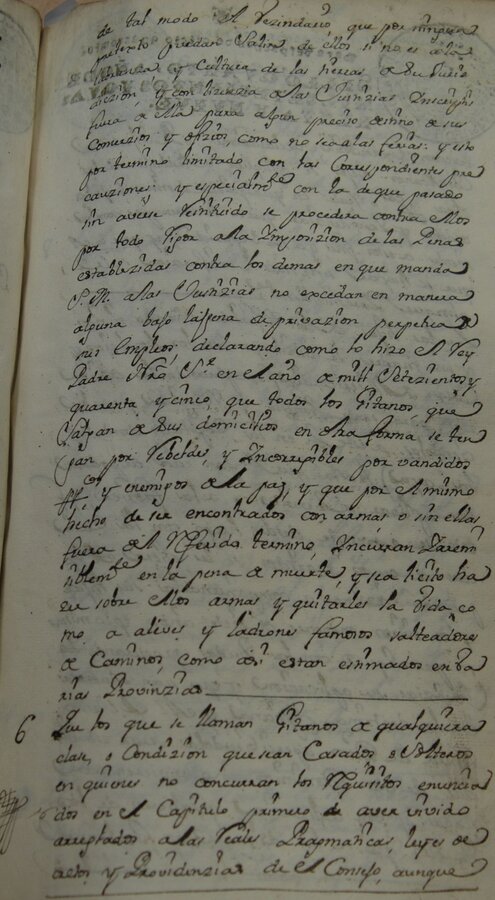 de tal modo el Vezindario, que por ningun
pretexto puedan Salir de ellos si no es a la
labranza y Cultura de las tierras de su Juris
dizion y con lizenzia de las Justizias
fuera de ella para algun preciso destino de sus
Comerzios y ofizios, como no sea a las ferias: y esto
por termino limitado con las Correspondientes pre
cauziones: y espezialmte con la de que pasado
sin averse restituido se procedera contra ellos
por todo rigor a la Ymposizion de las Penas
establezidas contra los demas en que manda
S. M. a las Justizias no excedan en manera
alguna bajo la pena de privazion perpetua de
sus Empleos; declarando como lo hizo el Rey
Padre Nro Sr en el año de mill Setezientos y
quarenta, y cinco, que todos los Gitanos, que
Salgan de sus domicilios en otra forma se ten
gan por Rebeldes, y Yncorregibles por vandidos
y enemigos de la paz, y que por el mismo
hecho de ser encontrados con armas o sin ellas
fuera del Referido termino, Yncurran Yrremi
siblemte en la pena de muerte, y sea lizito ha
zer sobre ellos armas y quitarles la vida, co
mo a aleves y ladrones famosos salteadores
de Caminos, como asi estan estimados en va
rias Provinzias
6 Que los que se llaman Gitanos de qualquiera
clase, o Condizion que sean Casados o Solteros
en quienes no concurran los Requisitos enuncia
dos en el Capitulo primero de aver vivido
arreglados a las Reales Pragmaticas, leyes de
cretos y Providenzias de el Consejo, aunque